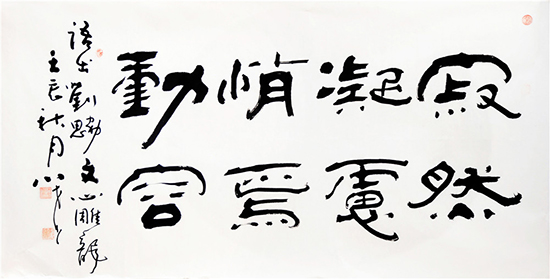 寂然
凝慮
悄焉
動容
語出劉勰文心雕龍
壬辰秋月